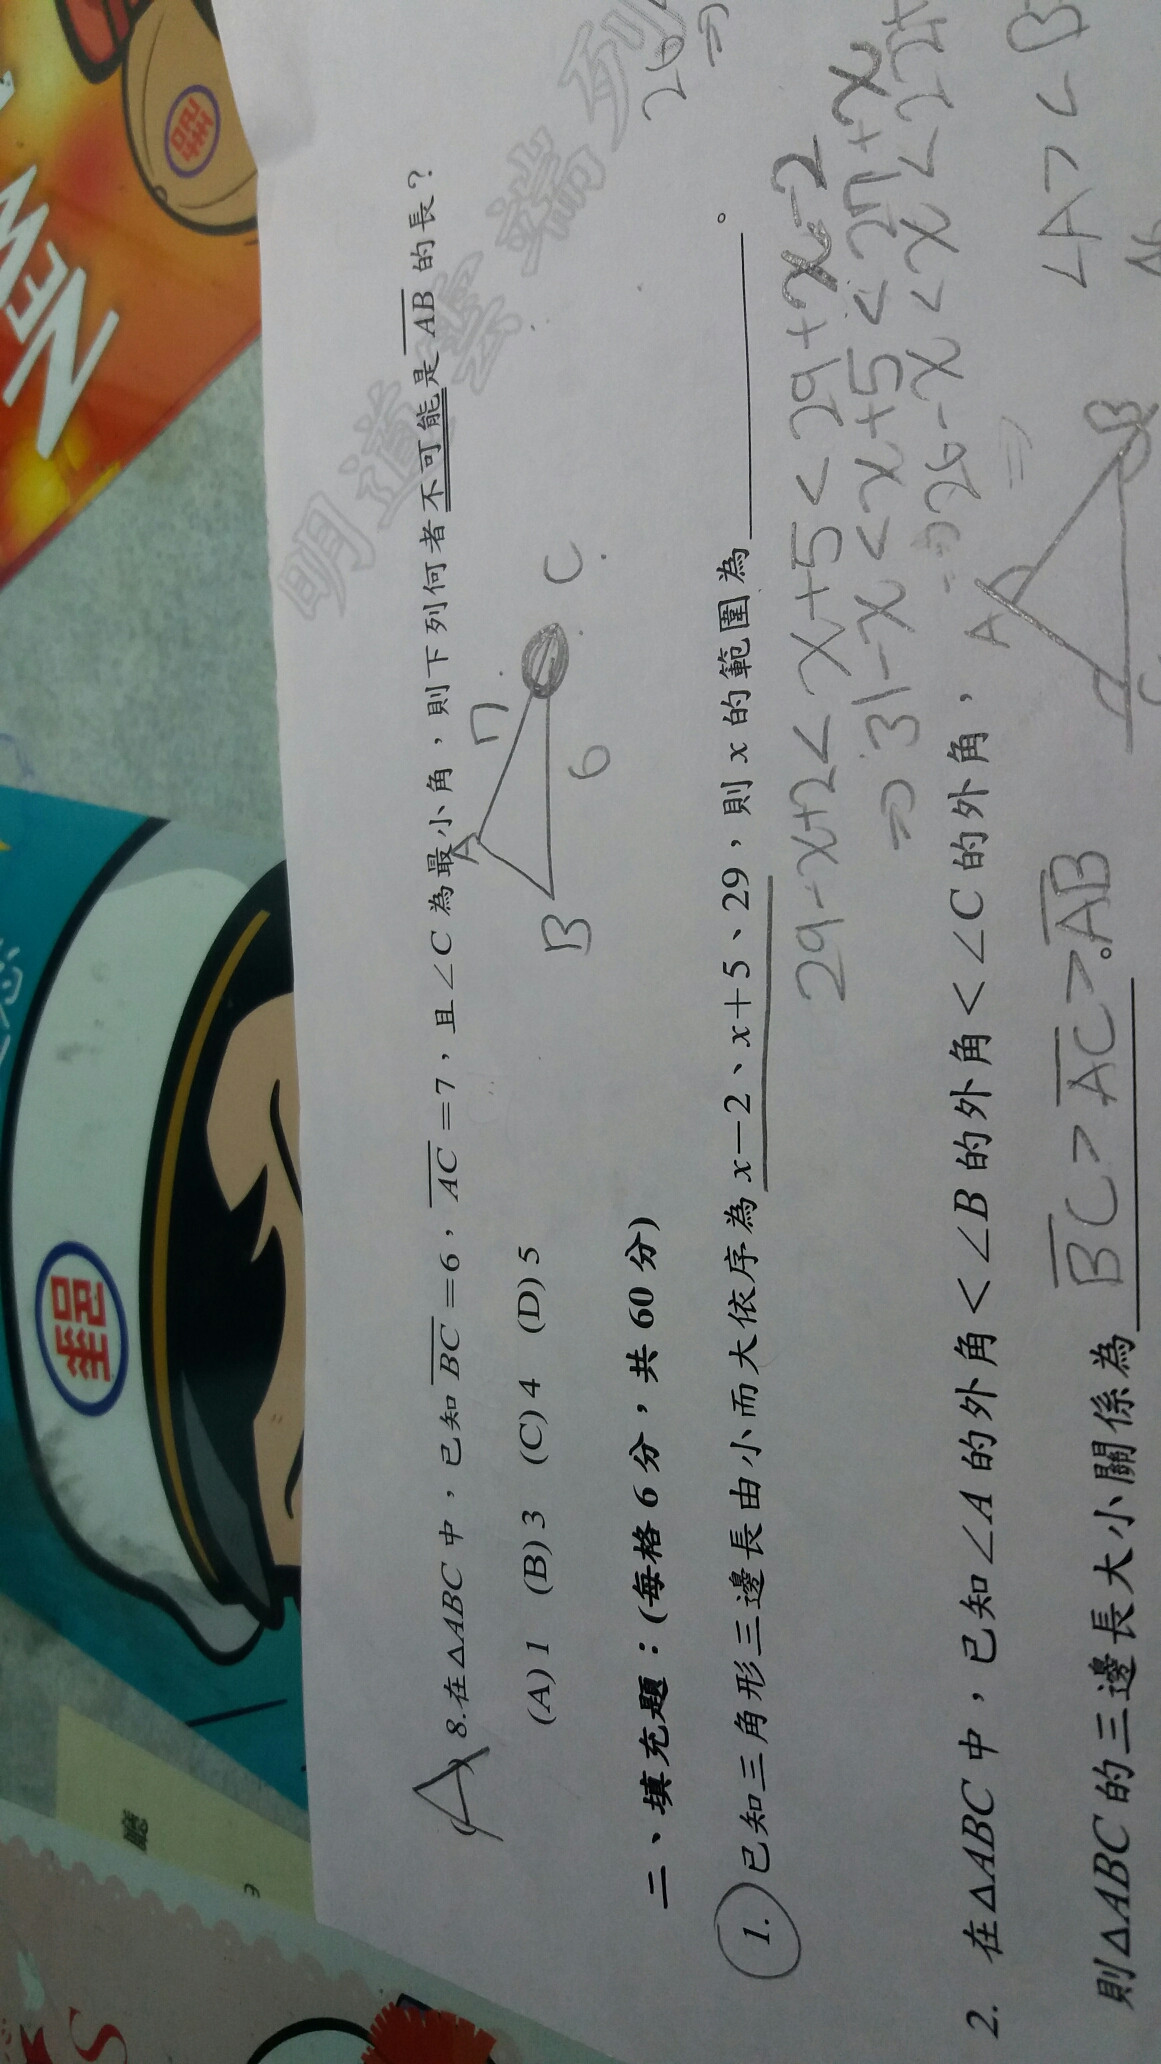 NEW
明道
A 8.在△ABC中，已知BC=6，AC=7，且∠C為最小角，則下列何者不可能是AB的長？
(A) 1 (B) 3 (C) 4 (D) 5
A 7 C
B 6
二、填充題：(每格 6 分，共 60 分)
1. 已知三角形三邊長由小而大依序為 x－2、x＋5、29，則 x 的範圍為
。
29-x+2<x+5<29+x-2
⇒31-x<x+5<27+x
⇒26-x<x<22+
2. 在△ABC中，已知∠A的外角＜∠B的外角＜∠C的外角，
A B
∠A>∠B
則△ABC的三邊長大小關係為 BC>AC>AB 。